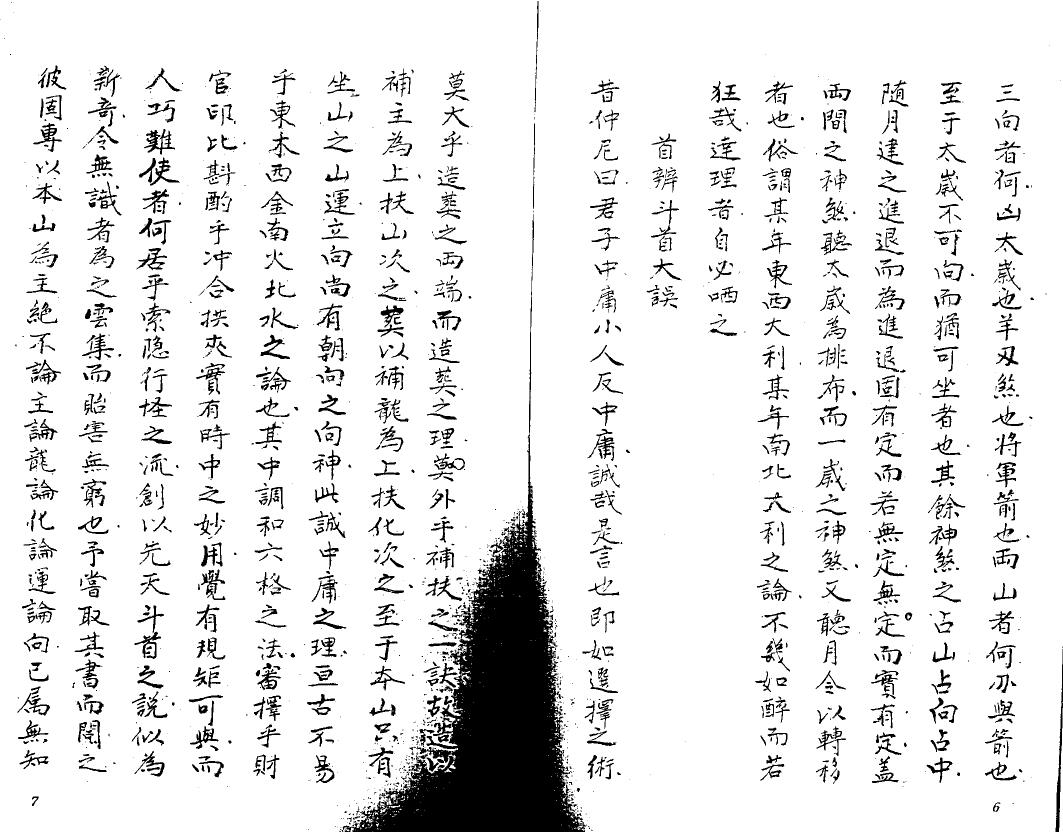 三向者何凶太歲也羊刃煞也將軍箭也兩山者何刀與箭也
至于太歲不可向而猶可坐者也其餘神煞之占山占向占中
随月建之進退而為進退固有定而若無定無定而實有定盖
兩間之神煞聽太歲為排布而一歲之神煞又聽月令以轉移
者也俗謂某年東西大利某年南北大利之論不幾如醉而若
狂哉達理者自必哂之
首辨斗首大誤
昔仲尼曰君子中庸小人反中庸誠哉是言也即如選擇之術
6
莫大乎造葬之兩端而造葬之理莫外乎補扶之一訣故造以
補主為上扶山次之葬以補龍為上扶化次之至于本山只有
坐山之山運立向尚有朝向之向神此誠中庸之理亘古不易
乎東木西金南火北水之論也其中調和六格之法審擇乎財
官印比斟酌乎冲合拱夾實有時中之妙用覺有規矩可與而
人巧難使者何居乎索隐行怪之流創以先天斗首之説似為
新奇令無識者為之雲集而貽害無窮也予嘗取其書而閱之
彼固專以本山為主絕不論主論龍論化論運論向已属無知
7